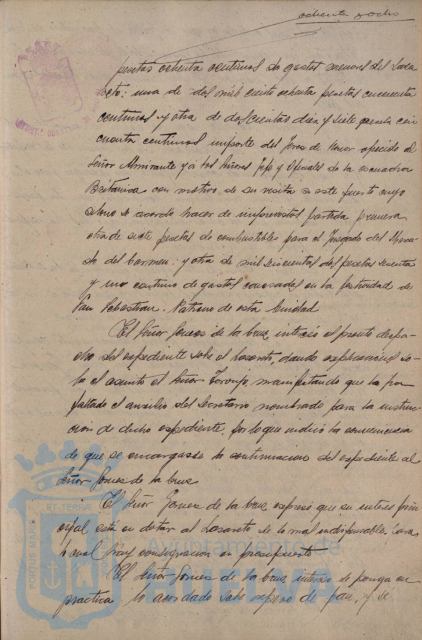 ochenta y ocho
pesetas ochenta centimos de gastos menores del Laza
reto; una de dos mil ciento ochenta pesetas cincuenta
centimos y otra de doscientas diez y siete pesetas cin
cuenta centimos importe del de honor ofrecido al
Señor Almirante y a los Señores Jefes y Oficiales de la escuadra
Britanica con motivo de su visita a este puerto cuyo
abono se acordó hacer de imprevistos partida primera
otra de siete pesetas de combustibles para el Juzgado del
del Carmen; y otra de mil seiscientas dos pesetas sesenta
y un centimo de gastos causados en la festividad de
San Sebastian Patrono de esta Ciudad
El Señor Gomez de la Cruz, interesó el pronto despa
cho del expediente sobre el Lazareto, dando explicaciones so
bre el asunto el Señor Toronjo, manifestando que le ha
faltado el auxilio del Secretario nombrado para la instruc
cion de dicho expediente, por lo que indicó la conveniencia
de que se encargase de la continuacion del expediente al
Señor Gomez de la Cruz
El Señor Gomez de la Cruz expresó que su interes prin
cipal está en dotar al Lazareto de lo mas indispensable, para
lo cual hay consignacion en presupuesto
El Señor Gomez de la Cruz, interesó se ponga en
practica lo acordado sobre repeso de pan, y se
PORTUS MARIS
ET TERRAE
Ayuntamiento de